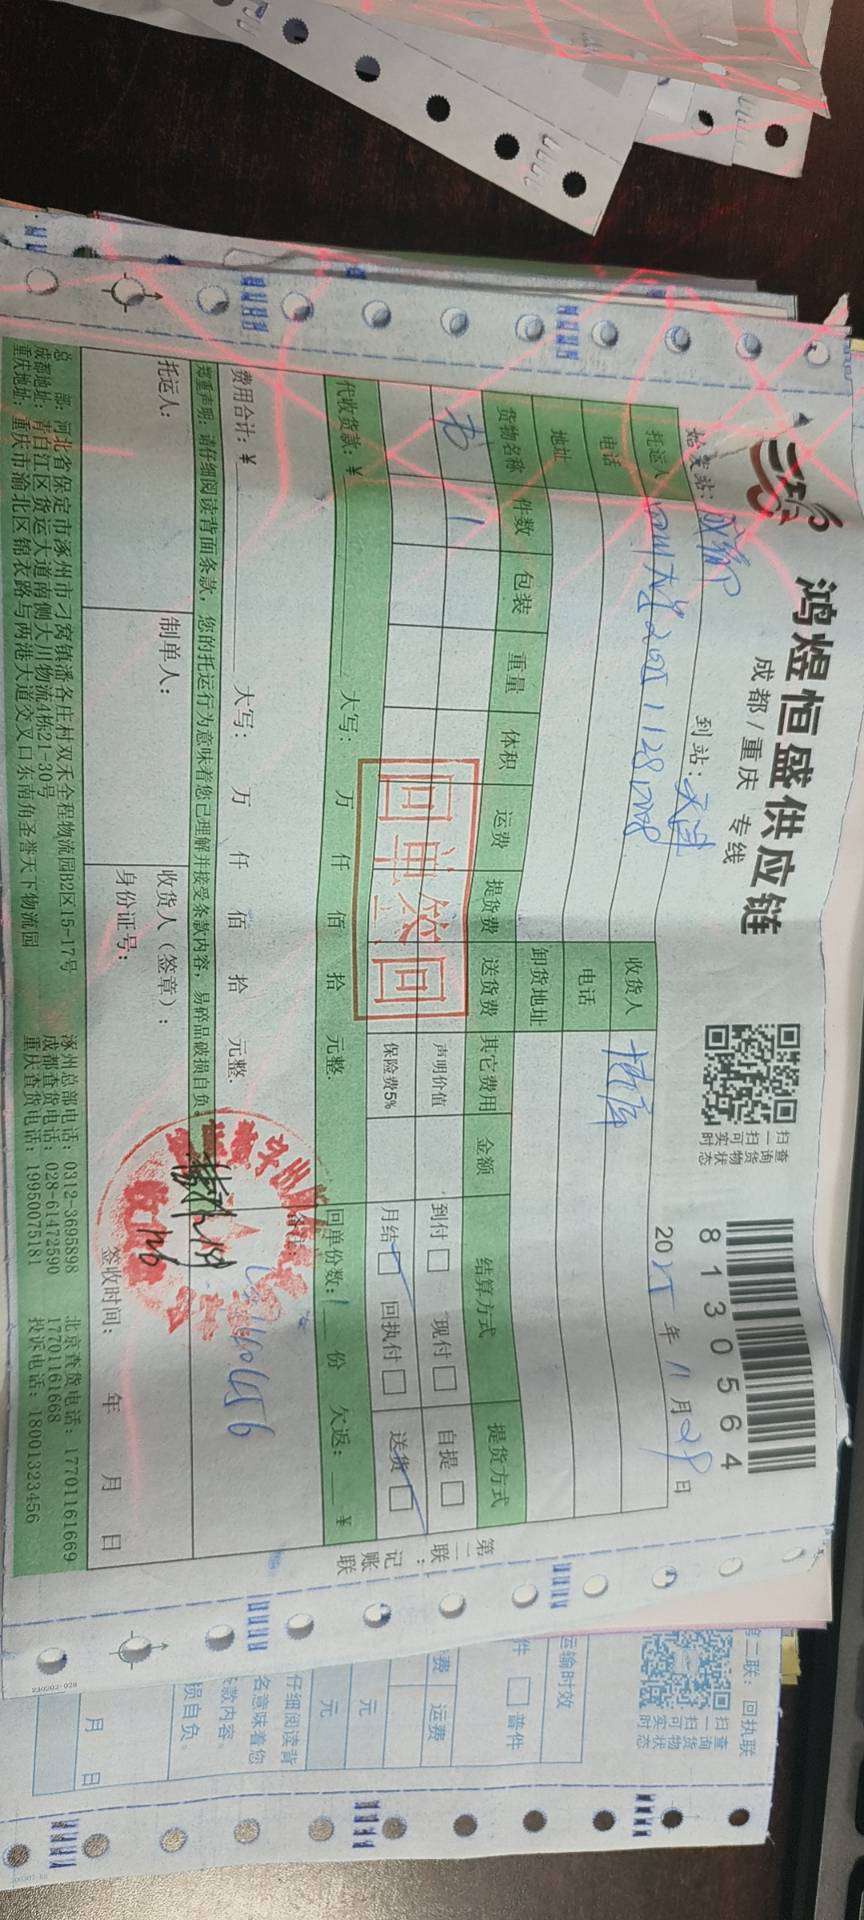 鸿煜恒盛供应链
成都/重庆 专线
扫一扫可实时
查询货物状态
8130564
始发站：成都 到站：天津 2025年11月29日
托运人 收货人
电话 电话
地址 卸货地址
货物名称 件数 包装 重量 体积 运费 提货费 送货费 其它费用 金额 结算方式 提货方式
书 1 声明价值 到付□ 现付□ 自提□
保险费5% 月结□ 回执付□ 送货□
回单签回
代收货款：￥ 大写： 万 仟 佰 拾 元整. 回单份数：1 份 欠返： ￥
费用合计：￥ 大写： 万 仟 佰 拾 元整.
郑重声明：请仔细阅读背面条款，您的托运行为意味着您已理解并接受条款内容，易碎品破损自负。
托运人： 制单人： 收货人（签章）：
身份证号： 签收时间： 年 月 日
总 部：河北省保定市涿州市刁窝镇潘各庄村双禾全程物流园B2区15-17号 涿州总部电话：0312-3695898 北京查货电话：17701161669
成都地址：青白江区货运大道南侧大川物流4栋21-30号 成都查货电话：028-61472590 17701161668
重庆地址：重庆市渝北区锦衣路与两港大道交叉口东南角圣誉天下物流园 重庆查货电话：19950075181 投诉电话：18001323456
第二联：记账联
第二联：回执联
扫一扫可实时
查询货物状态
运输时效
件 □ 普件
费 运费
元 元
仔细阅读背
名意味着您
款内容。
损自负。
月 日